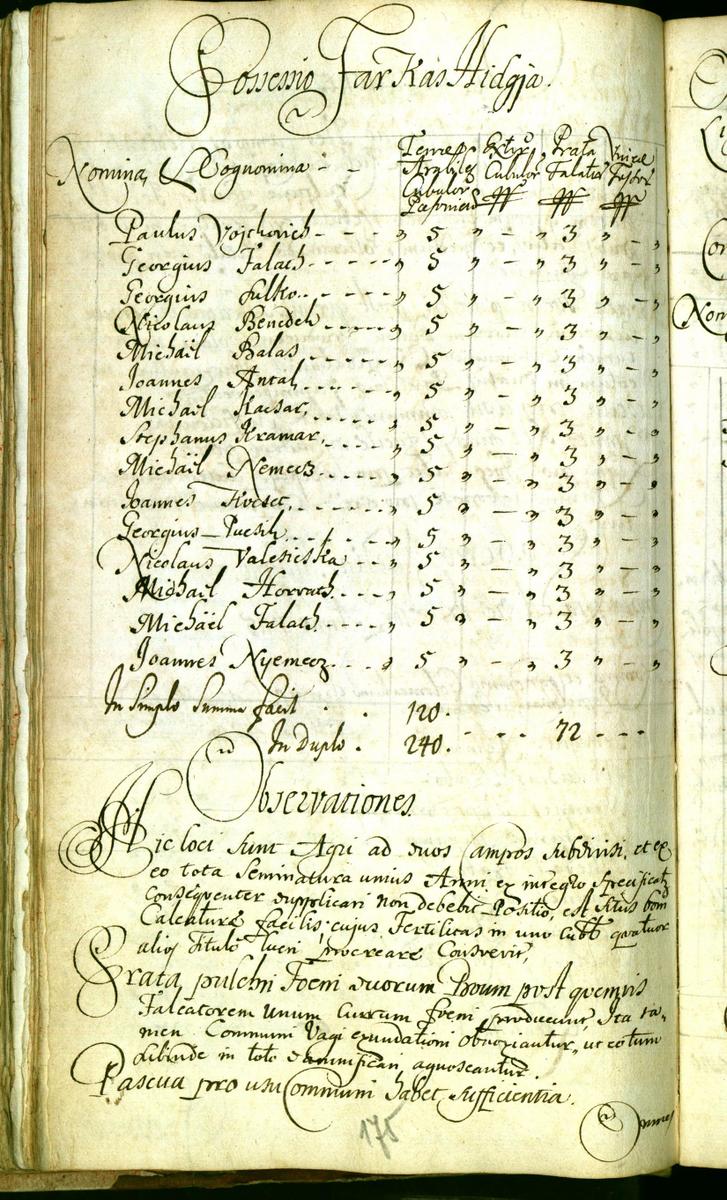 Possessio Farkas Hidgja.
Nomina, & Cognomina - - Terrę Arabiles Cubulor Posonien Extirp Cubulor ff Prata Falcator ff Vineę ff
Paulus Vojchovich - - - " 5 " - " 3 " - "
Georgius Falach - - - - " 5 " - " 3 " - "
Georgius Sulko - - - - " 5 " - " 3 " - "
Nicolaus Benedek - - - - " 5 " - " 3 " - "
Michaël Balas - - - - " 5 " - " 3 " - "
Joannes Antal - - - - " 5 " - " 3 " - "
Michaël Kaesar, - - - - " 5 " - " 3 " - "
Stephanus Kramar, - - - - " 5 " - " 3 " - "
Michaël Nemecz - - - - " 5 " - " 3 " - "
Joannes - - - - " 5 " - " 3 " - "
Georgius - - - - " 5 " - " 3 " - "
Nicolaus - - - - " 5 " - " 3 " - "
Michaël Horvath - - - " 5 " - " 3 " - "
Michaël Falath - - - - " 5 " - " 3 " - "
Joannes Nyemecz - - - " 5 " - " 3 " - "
In Simplo Summa facit . . 120.
In Duplo . 240. - - - 72 - - -
Observationes.
Hic loci sunt Agri ad duos Campos subdivisi, et ex
eo tota Seminatura unius Anni ex integro
Consequenter dupplicari non debebit, Positio, est situs boni
Calcaturę facilis, cujus Fertilitas in uno Cubb quatuor
alioq titulo lucri procreare Consvevit,
Prata pulchri Foeni duorum Boum post quemvis
Falcatorem Unum Currum foeni producunt, Ita ta-
men Communi Vagi exundationi obnoxiantur, ut eotum
in toto damnificari agnoscantur.
Pascua pro usu Communi habet, sufficientia.
Omnes
175